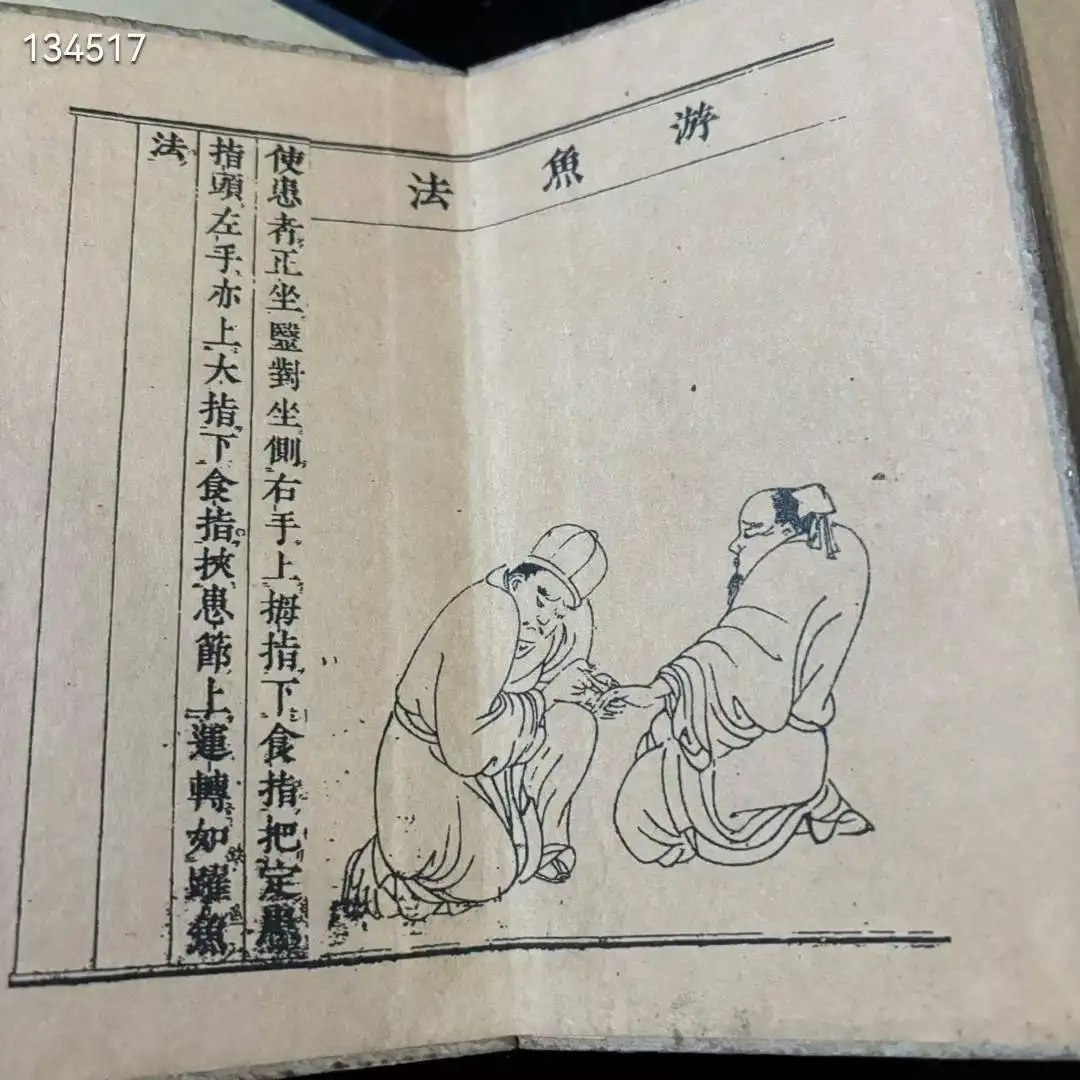 134517
游魚法
使患者正坐毉對坐側右手上拇指下食指把定
指頭左手亦上大指下食指挾患節上運轉如躍魚
法